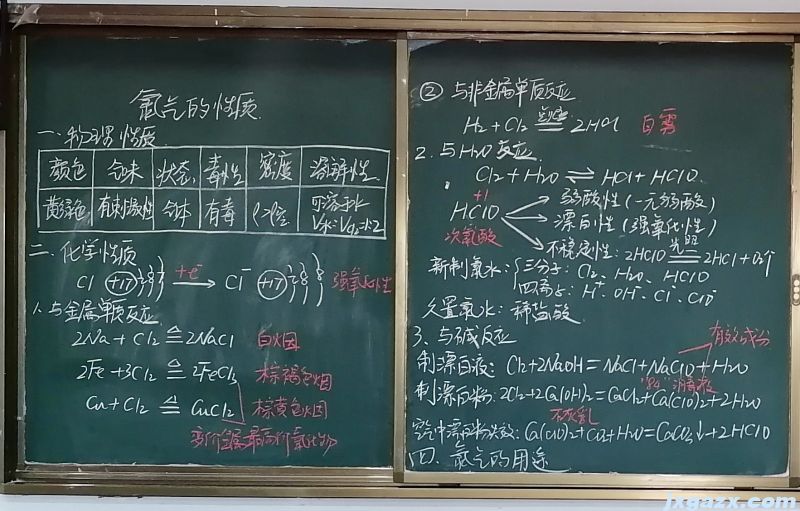 氯气的性质
一、物理性质
颜色 气味 状态 毒性 密度 溶解性
黄绿色 有刺激性 气体 有毒 ρ>ρ空 可溶于水
V水:V Cl₂=1:2
二、化学性质
Cl (+17) +e⁻ Cl⁻ (+17) 强氧化性
1. 与金属单质反应
2Na + Cl₂ ≜ 2NaCl 白烟
2Fe + 3Cl₂ ≜ 2FeCl₃ 棕褐色烟
Cu + Cl₂ ≜ CuCl₂ 棕黄色烟
变价金属最高价氯化物
② 与非金属单质反应
H₂ + Cl₂ 点燃 2HCl 白雾
2. 与H₂O反应
Cl₂ + H₂O ⇌ HCl + HClO
+1
HClO
次氯酸
弱酸性(一元弱酸)
漂白性(强氧化性)
不稳定性: 2HClO 光照 2HCl + O₂↑
新制氯水: 三分子: Cl₂、H₂O、HClO
四离子: H⁺ OH⁻ Cl⁻ ClO⁻
久置氯水: 稀盐酸
3、与碱反应 有效成分
制漂白液: Cl₂+2NaOH = NaCl + NaClO + H₂O
"84"消毒液
制漂白粉: 2Cl₂+2Ca(OH)₂ = CaCl₂ + Ca(ClO)₂ + 2H₂O
空气中漂白粉失效: Ca(ClO)₂ + CO₂ + H₂O = CaCO₃↓ + 2HClO
四、氯气的用途
jxgazx.com